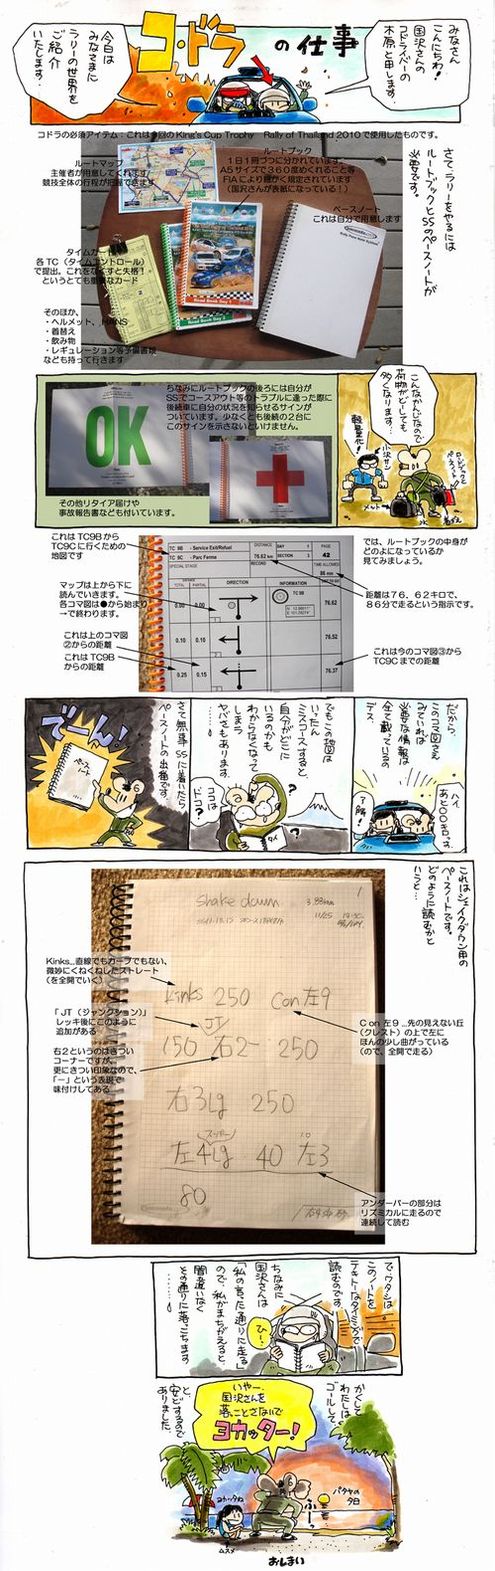 みなさん
こんにちわ!
国沢さんの
コドライバーの
木原と申します。
コ・ドラの仕事
今日は
みなさまに
ラリーの世界を
ご紹介
いたします。
コドラの必須アイテム:これは今回のKing's Cup Trophy Rally of Thailand 2010で使用したものです。
ルートマップ
主催者が用意してくれます
競技全体の行程が把握できます
ルートブック
1日1冊づつに分かれています。
A5サイズで360度めくれること等
FIAにより細かく規定されています
(国沢さんが表紙になっている!)
ペースノート
これは自分で用意します
タイムカード
各TC(タイムコントロール)
で提出。これをなくすと失格!
というとても重要なカード
そのほか、
・ヘルメット、HANS
・着替え
・飲み物
・レギュレーション等予備書類
なども持って行きます
Road Book Day 1
Road Book Day 2
さて、ラリーをやるには
ルートブックとSSのペースノートが
必要です。
OK
ちなみにルートブックの後ろには自分が
SSでコースアウト等のトラブルに逢った際に
後続車に自分の状況を知らせるサインが
ついています。少なくとも後続の2台に
このサインを示さないといけません。
その他リタイア届けや
事故報告書なども付いています。
こんなかんじなので
荷物がどーしても
多くなります…
軽量化!
小沢サン
メット
着がえ
これはTC9Bから
TC9Cに行くための
地図です
マップは上から下に
読んでいきます。
各コマ図は●から始まり
→で終わります。
これは上のコマ図
②からの距離
これはTC9B
からの距離
では、ルートブックの中身が
どのよになっているか
見てみましょう。
距離は76、62キロで、
86分で走るという指示です。
これは今のコマ図③から
TC9Cまでの距離
TC 9B - Service Exit/Refuel
TC 9C - Parc Ferme
SPECIAL STAGE
DISTANCE
76.62 km
RECORD
DAY 1
SECTION 3
PAGE
42
TIME ALLOWED
86 min
TOTAL PARTIAL
DIRECTION
INFORMATION
0.00 0.00
TC 9B
76.62
0.10 0.10
76.52
0.25 0.15
76.37
だから
このコマ図さえ
みていれば
必要な情報は
全て載っているの
デス。
ハイ
あと〇〇キロっす。
了解!
でもこの地図は
いったん
ミスコースすると
自分がどこに
いるのかも
わからなくなって
しまう
ヤバさもあります。
………。
ココは
ドコ?
タイ
さて無事SSに着いたら
ペースノートの出番です。
でーん!
ペース
ノート
これはシェイクダウン用の
ペースノートです。
どのように読むかと
いうと…
shake down
3.88km
1
11/25
Kinks 250 Con左9
JT
150 右2− 250
右3Lg 250
スーパー
左4Lg 40 左3
80
Kinks…直線でもカーブでもない、
微妙にくねくねしたストレート
(を全開でいく)
「JT(ジャンクション)」
レッキ後にこのように
追加がある
右2というのはきつい
コーナーですが、
更にきつい印象なので、
「−」という表現で
味付けしてある
Con 左9…先の見えない丘
(クレスト)の上で左に
ほんの少し曲がっている
(ので、全開で走る)
アンダーバーの部分は
リズミカルに走るので
連続して読む
で、ワタシは
このノートを
テキトーなタイミングで
読むのです。
ちなみに
国沢さんは
「私の言った通りに走る」
ので、私がまちがえると、
間違いなく
その通りに落っこちます
………。
ひー!
かくして
わたしは、
ゴールして、
いやー、
国沢さんを
落っことさないで
ヨカッター!
と、
安どするので
ありました。
ふーっ
パタヤの
夕日
ヨカッタね
ムスメ
おしまい